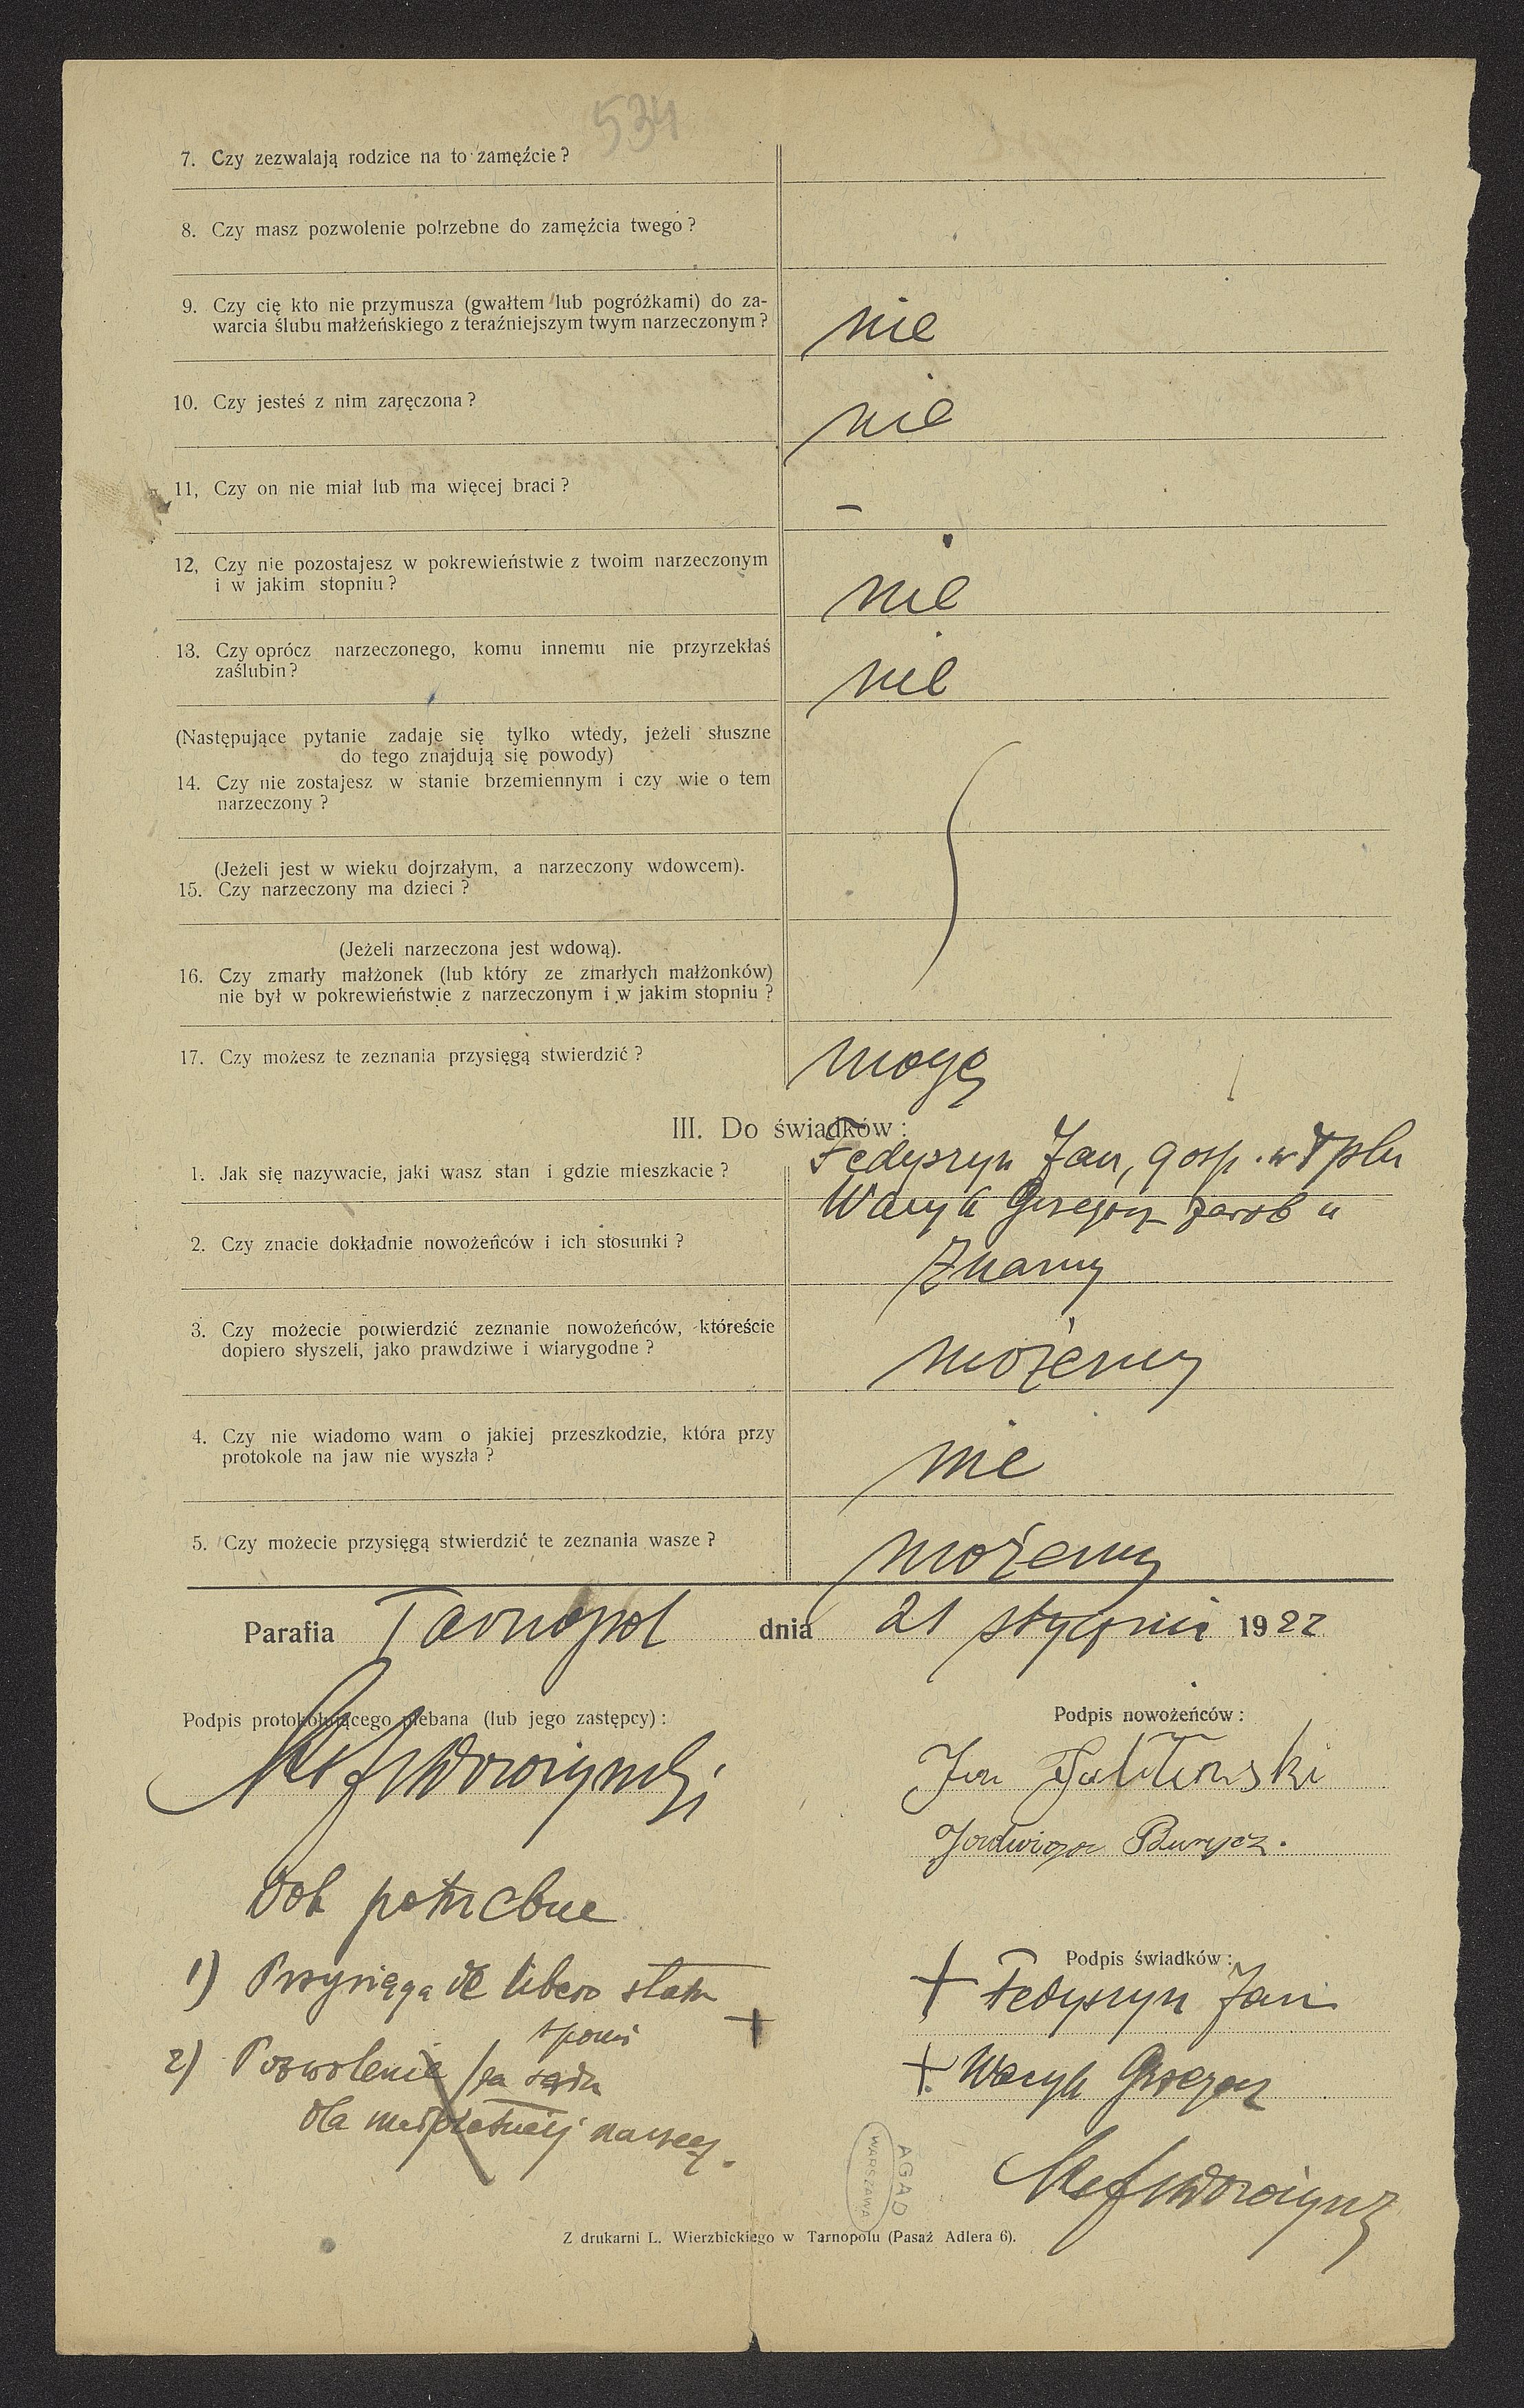 534
7. Czy zezwalają rodzice na to zamęźcie?
8. Czy masz pozwolenie potrzebne do zamęźcia twego?
9. Czy cię kto nie przymusza (gwałtem lub pogróżkami) do za-
warcia ślubu małżeńskiego z teraźniejszym twym narzeczonym?
nie
10. Czy jesteś z nim zaręczona?
nie
11, Czy on nie miał lub ma więcej braci?
–
12, Czy nie pozostajesz w pokrewieństwie z twoim narzeczonym
i w jakim stopniu?
nie
13. Czy oprócz narzeczonego, komu innemu nie przyrzekłaś
zaślubin?
nie
(Następujące pytanie zadaje się tylko wtedy, jeżeli słuszne
do tego znajdują się powody)
14. Czy nie zostajesz w stanie brzemiennym i czy wie o tem
narzeczony?
(Jeżeli jest w wieku dojrzałym, a narzeczony wdowcem).
15. Czy narzeczony ma dzieci?
(Jeżeli narzeczona jest wdową).
16. Czy zmarły małżonek (lub który ze zmarłych małżonków)
nie był w pokrewieństwie z narzeczonym i w jakim stopniu?
17. Czy możesz te zeznania przysięgą stwierdzić?
mogę
III. Do świadków:
1. Jak się nazywacie, jaki wasz stan i gdzie mieszkacie?
Fedyszyn Jan, gosp. w Tplu
Waryk Grzegorz zarob "
2. Czy znacie dokładnie nowożeńców i ich stosunki?
Znamy
3. Czy możecie potwierdzić zeznanie nowożeńców, któreście
dopiero słyszeli, jako prawdziwe i wiarygodne?
możemy
4. Czy nie wiadomo wam o jakiej przeszkodzie, która przy
protokole na jaw nie wyszła?
nie
5. Czy możecie przysięgą stwierdzić te zeznania wasze?
możemy
Parafia Tarnopol dnia 21 stycznia 1922
Podpis protokołującego plebana (lub jego zastępcy):
Podpis nowożeńców:
Jan
Jadwiga
Dok potrzebne
1) Przysięga de libero statu
sponsi
2) Pozwolenie sądu
dla małoletniej narzecz.
Podpis świadków:
+ Fedyszyn Jan
+ Waryk Grzegorz
AGAD
WARSZAWA
Z drukarni L. Wierzbickiego w Tarnopolu (Pasaż Adlera 6).